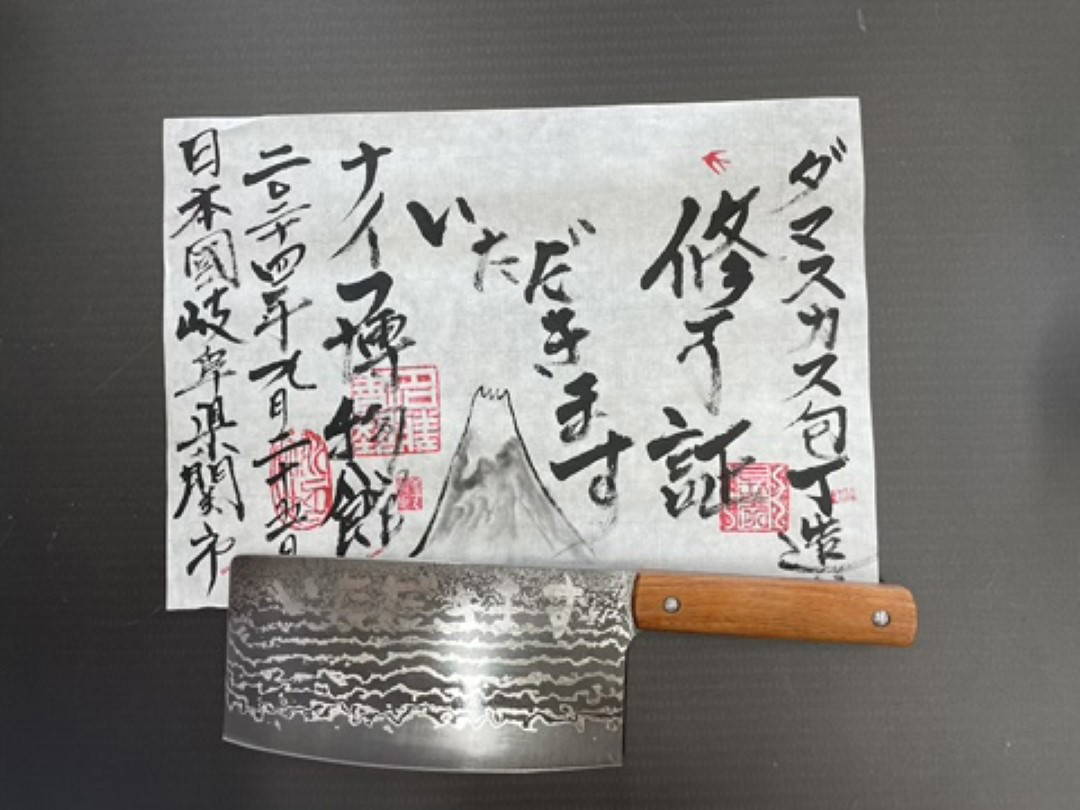 ダマスカス包丁造
修了証
いただきます
ナイフ博物館
二〇二十四年九月二十九日
日本國岐阜県関市
いただきます